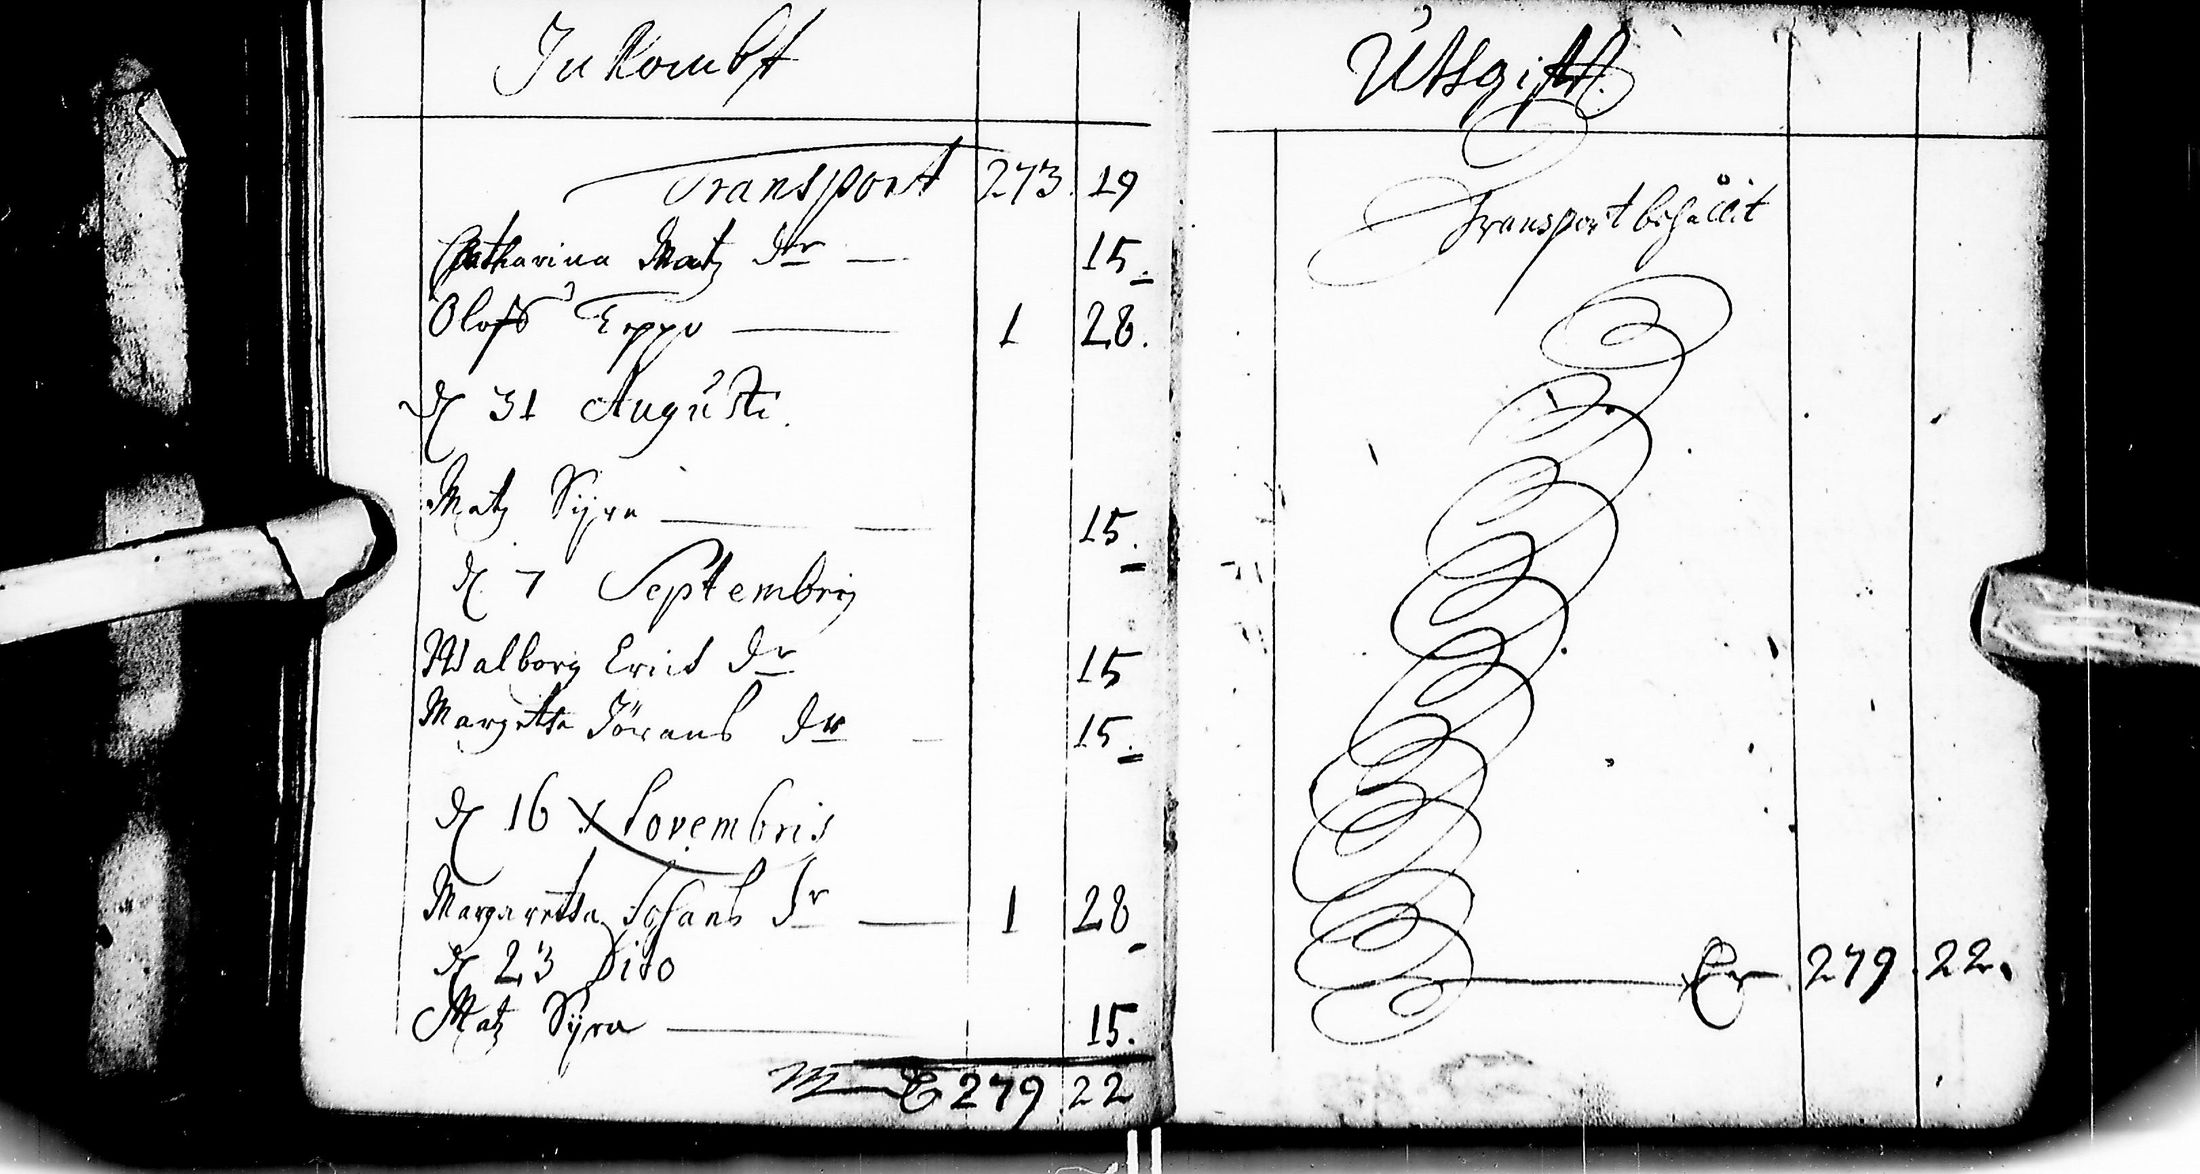 Inkombst
Transport 273. 19
Catharina Matz dr — 15.
Olofs Erppo — 1 28.
d 31 Augusti.
Matz Sÿra — 15.
d. 7 Septembris
Walborg Erics dr 15
Margetta Jörans dr — 15.
d 16 Novembris
Margaretta Johans dr — 1 28
d 23 Dito
Matz Sÿra — 15.
279 22
Utgift.
Transport behållit
279. 22.